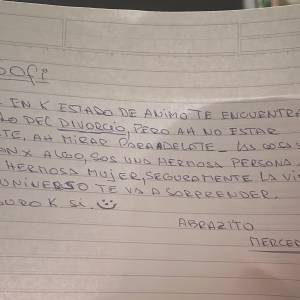 SOFI
EN K ESTADO DE ANIMO TE ENCUENTRA
LO DEL DIVORCIO, PERO AH NO ESTAR
TE, AH MIRAR PARA ADELATE - LAS COSAS
AN X ALGO, SOS UNA HERMOSA PERSONA,
HERMOSA MUJER, SEGURAMENTE LA VI
UNIVERSO TE VA A SORPRENDER.
URO K SI.
ABRAZITO
MERCE